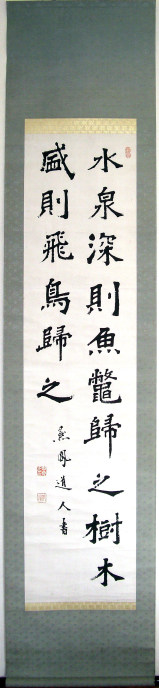 水泉深則魚鼈歸之樹木
盛則飛鳥歸之
鳳道人書